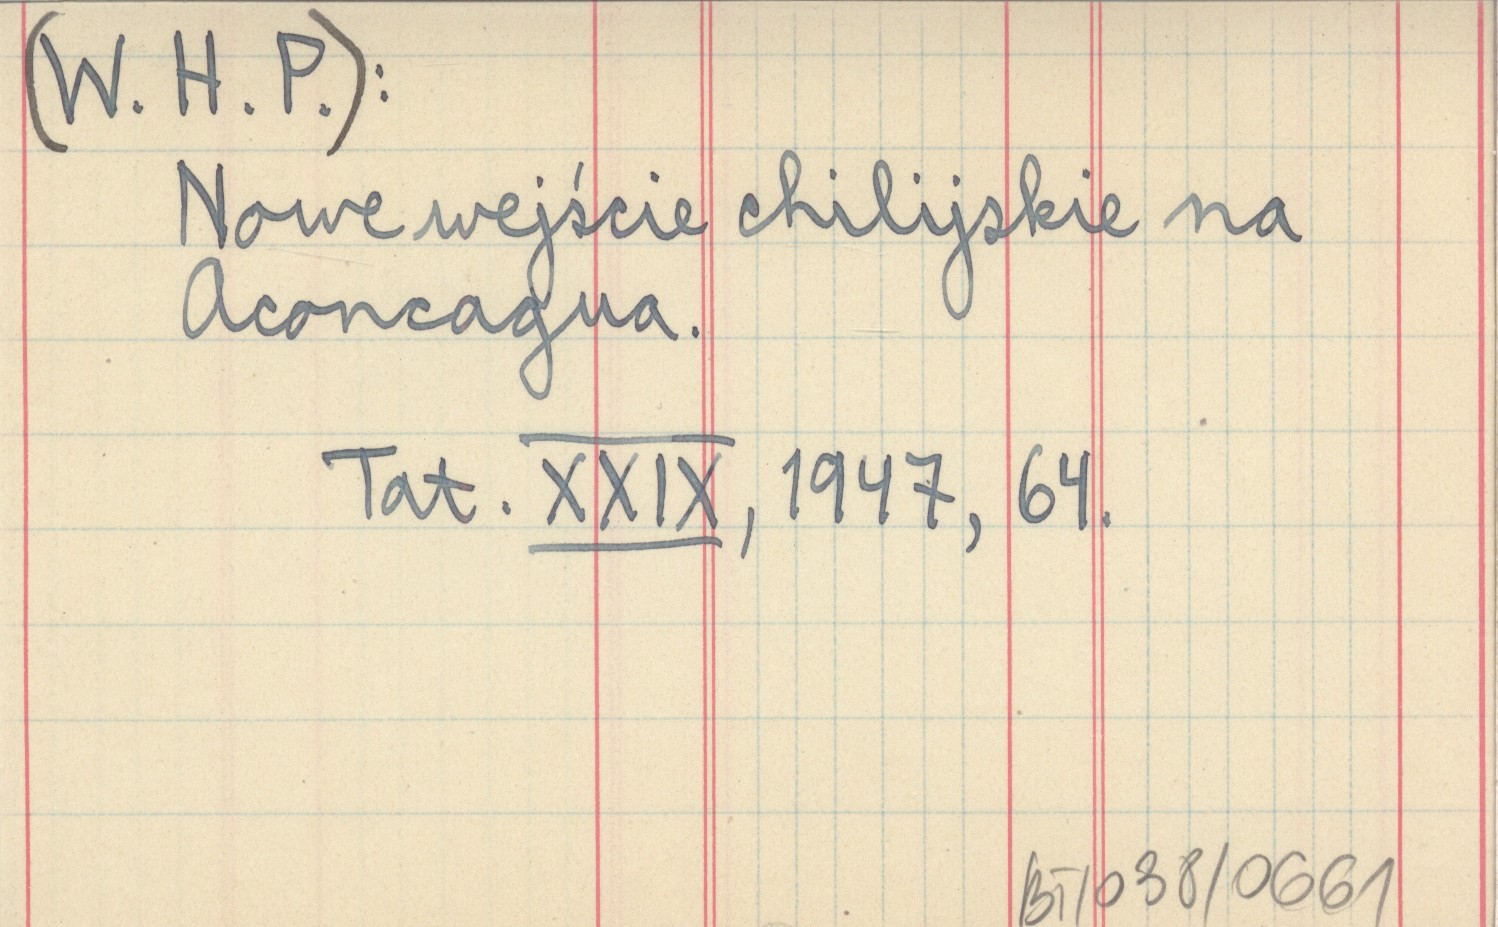 (W. H. P.):
Nowe wejście chilijskie na
Aconcagua.
Tat. XXIX, 1947, 64.
BT/038/0661